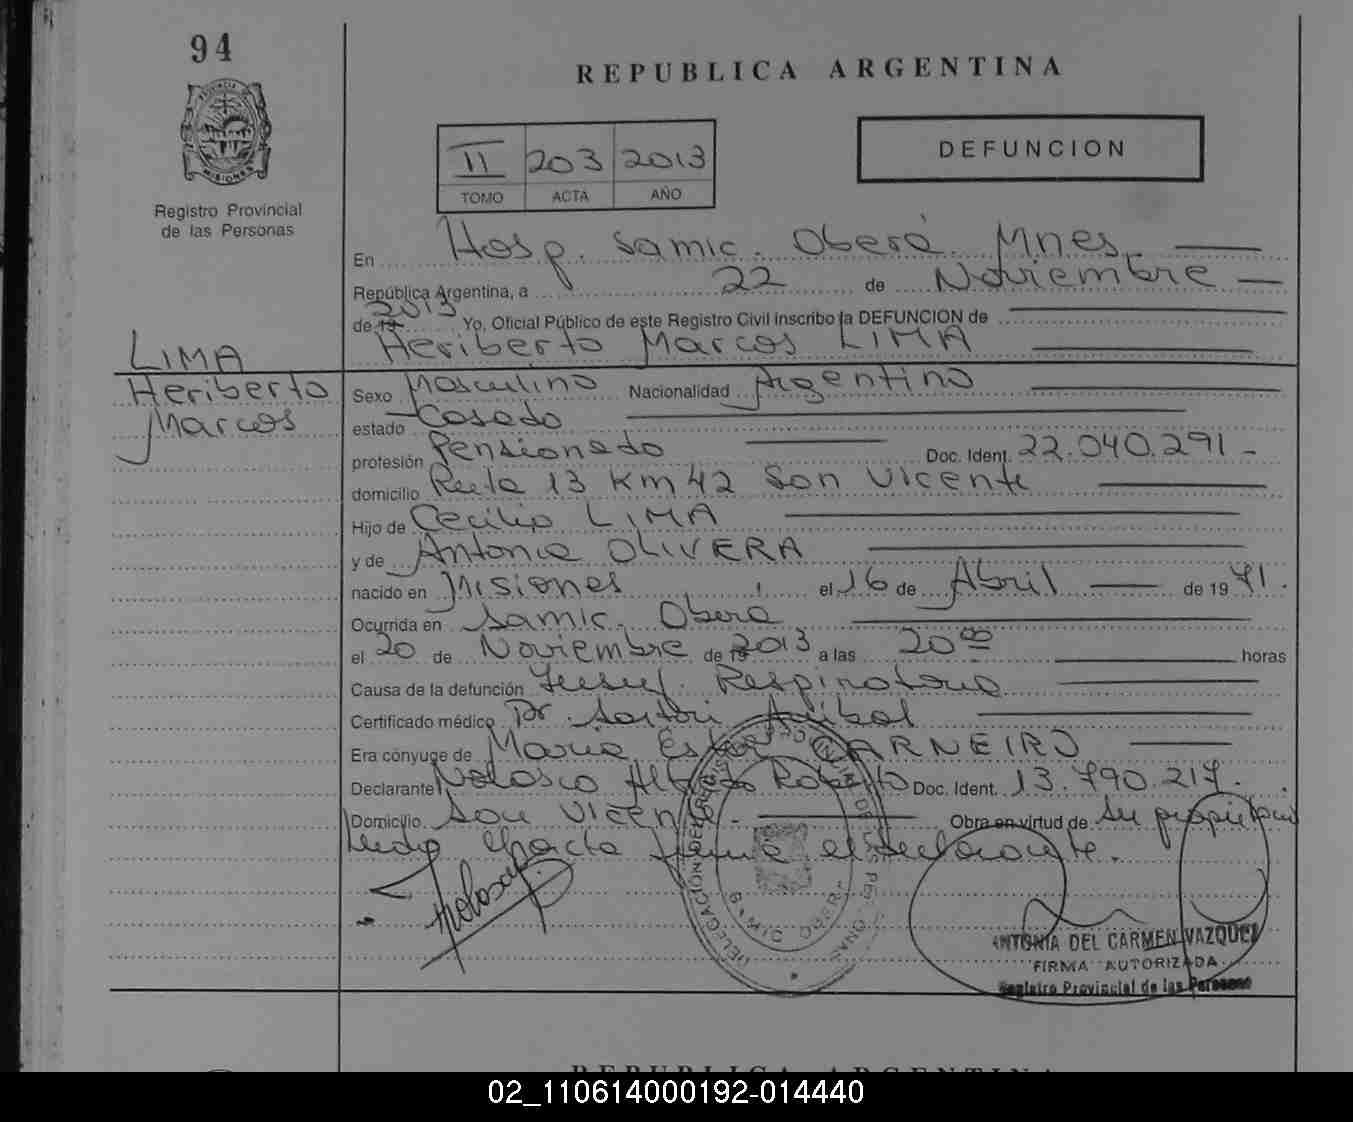 94
REPUBLICA ARGENTINA
PROVINCIA DE
MISIONES
Registro Provincial
de las Personas
II 203 2013
TOMO ACTA AÑO
DEFUNCION
En Hosp. Samic. Oberá Mnes,
República Argentina, a 22 de Noviembre
de 19 2013 Yo, Oficial Público de este Registro Civil inscribo la DEFUNCION de
Heriberto Marcos LIMA
LIMA
Heriberto
Marcos
Sexo Masculino Nacionalidad Argentino
estado Casado
profesión Pensionado Doc. Ident. 22.040.291
domicilio Ruta 13 Km 42 San Vicente
Hijo de Cecilio LIMA
y de Antonia OLIVERA
nacido en Misiones el 16 de Abril de 19 71.
Ocurrida en Samic. Oberá
el 20 de Noviembre de 19 2013 a las 20 00 horas
Causa de la defunción Insuf. Respiratoria
Certificado médico Dr. Sartori Anibal
Era cónyuge de María Ester CARNEIRO
Declarante Nolasco Alberto Roberto Doc. Ident. 13.790.217.
Domicilio San Vicente. Obra en virtud de su propio
firma el declarante.
Nolasco
ANTONIA DEL CARMEN VAZQUEZ
FIRMA AUTORIZADA
Registro Provincial de las Personas
REPUBLICA ARGENTINA
02_110614000192-014440